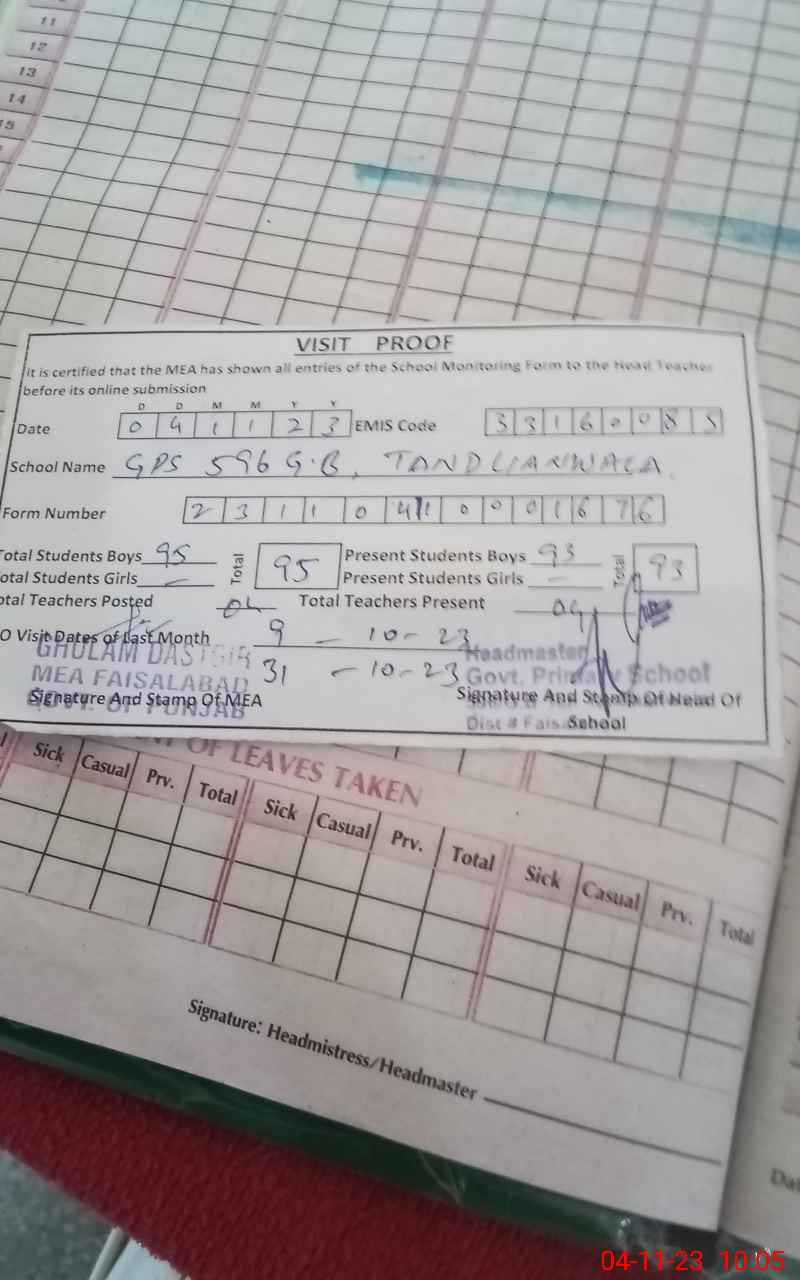 11
12
13
14
15
VISIT PROOF
It is certified that the MEA has shown all entries of the School Monitoring Form to the Head Teacher
before its online submission
D D M M Y Y
Date 0 4 1 1 2 3 EMIS Code 3 3 1 6 0 0 8 5
School Name GPS 596 G.B, TANDLIANWALA
Form Number 2 3 1 1 0 4 1 0 0 0 1 6 7 6
Total Students Boys 95 Total 95 Present Students Boys 93 Total 93
Total Students Girls — Present Students Girls —
Total Teachers Posted 04 Total Teachers Present 04
O Visit Dates of Last Month 9 - 10 - 23
31 - 10 - 23
GHULAM DASTGIR
MEA FAISALABAD
GOVT. OF PUNJAB
Signature And Stamp Of MEA
Headmaster
Govt. Primary School
Signature And Stamp Of Head Of
School
Dist # Fais
OF LEAVES TAKEN
Sick Casual Prv. Total Sick Casual Prv. Total Sick Casual Prv. Total
Signature: Headmistress/Headmaster
04-11-23 10:05